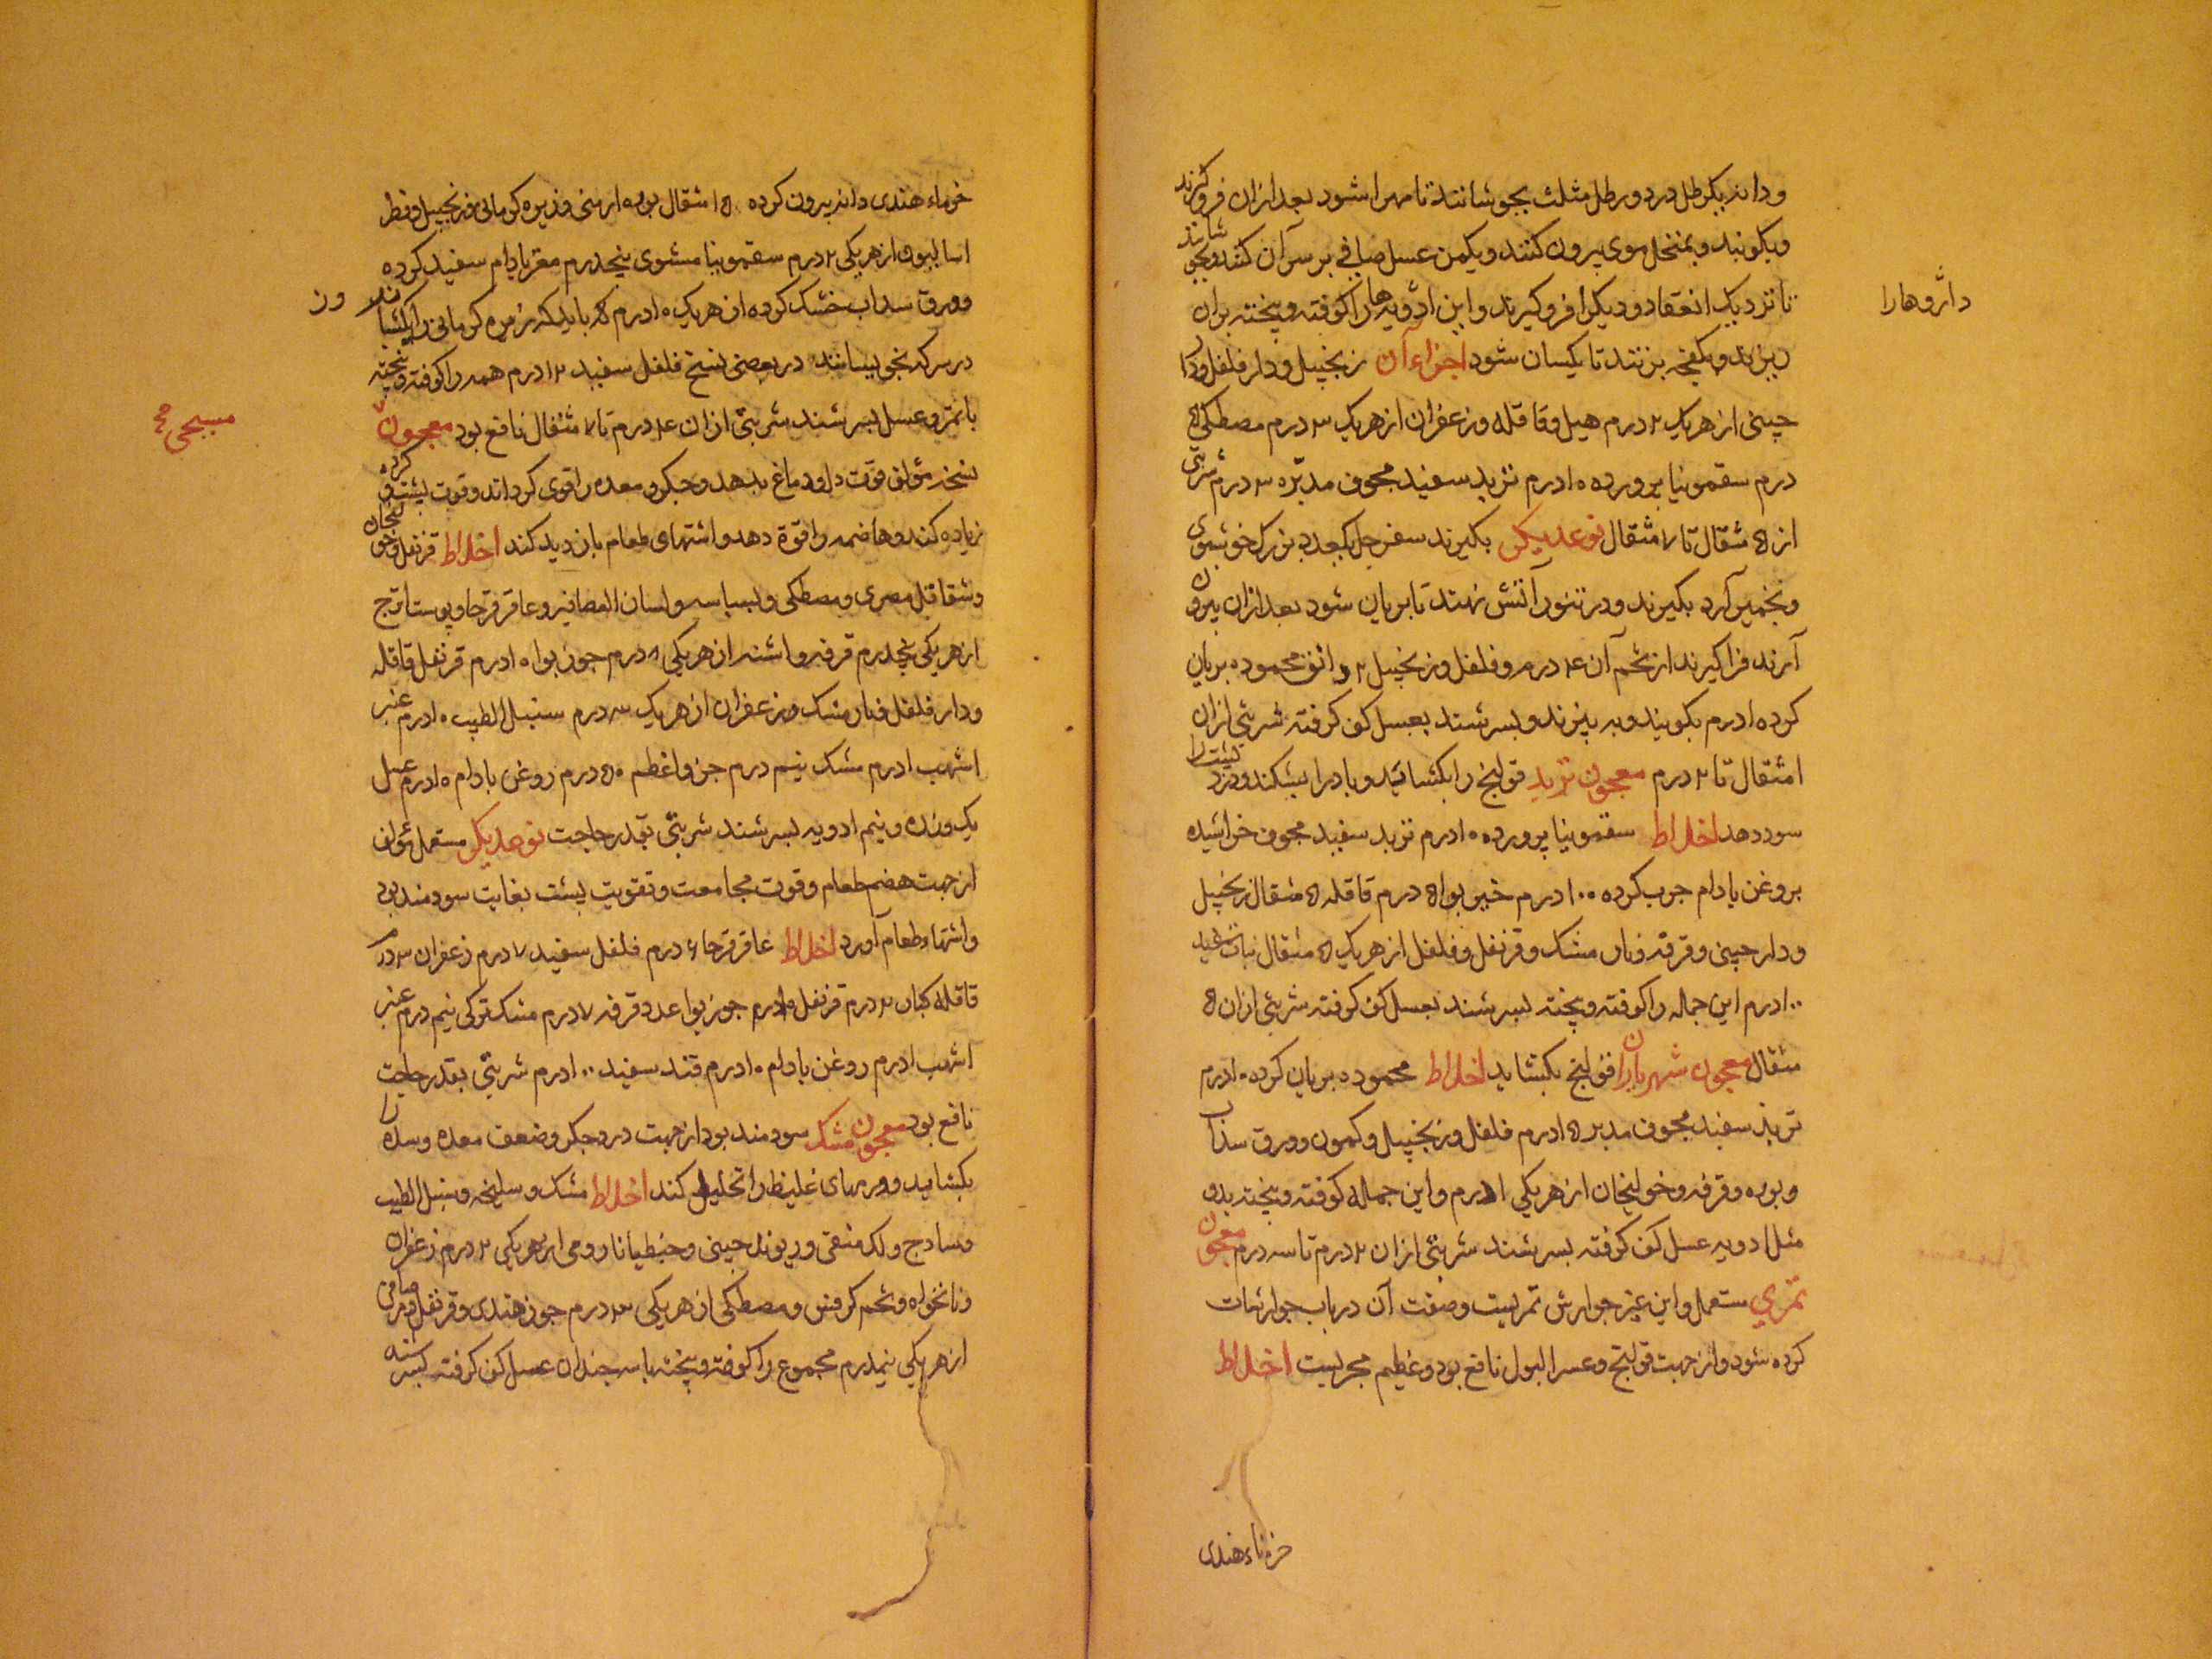 ودانه یکرطل در دو رطل مثلث بجوشانند تا مهرا شود بعد ازان فرو گیرند
وبکوبند وبمنخل موی بیرون کنند ویکمن عسل صافی بر سر آن کنند وبجوشانند
تا نزدیک انعقاد ودیگر افرو گیرند واین ادویه ها را کوفته وبیخته بران
داروها را
ریزند وبکفچه بزنند تا یکسان شود اجزاء آن زنجبیل ودار فلفل ودار
چینی از هریک ۲ درم هیل وقاقله وزعفران از هریک ۳ درم مصطکی ۵
درم سقمونیا پرورده ۱۰ درم تربد سفید مجوف مدبر ۳۰ درم شربتی
از ۵ مثقال تا ۷ مثقال نوع دیگر بگیرند سفرجل یکعدد بزرگ خوشبوی
وبخمیر آرد بگیرند ودر تنور آتش نهند تا بریان شود بعد ازان بیرون
آرند فرا گیرند از شحم آن ۴۰ درم وفلفل وزنجبیل ۲ محموده بریان
کرده ۱ درم بکوبند وبه بیزند وبسرشند بعسل کف گرفته شربتی ازان
۱ مثقال تا ۲ درم معجون تربد قولنج را بکشائید وبادرا بشکند ودرد پشت را
سود دهد اخلاط سقمونیا پرورده ۱۰ درم تربد سفید مجوف خراشیده
بروغن بادام چرب کرده ۱۰۰ درم خیربوا ۵ درم قاقله ۵ مثقال زنجبیل
ودارچینی وقرفه ونار مشک وقرنفل وفلفل از هریک ۵ مثقال نبات سفید
۱۰۰ درم این جمله را کوفته وبیخته بسرشند بعسل کف گرفته شربتی ازان ۵
مثقال معجون شهریاران قولنج بکشاید اخلاط محموده بریان کرده ۱۰ درم
تربد سفید مجوف مدبر ۱۵ درم فلفل وزنجبیل وکمون وورق سداب
وبوره وقرفه وخولنجان از هریکی ۱ درم واین جمله کوفته وبیخته بدو
مثل ادویه عسل کف گرفته بسرشند شربتی ازان ۲ درم تا سه درم معجون
تمری مستعمل واین غیر جوارش تمریست وصفت آن در باب جوارشات
کرده شود واز جهت قولنج وعسر البول نافع بود وعظیم مجربست اخلاط
خرماء هندی
خرماء هندی دانه بیرون کرده ۱۵ مثقال بوره ارمنی وزیره کرمانی وزنجبیل وفطر
اسالیون از هریکی ۲ درم سقمونیا مشوی پنجدرم مغز بادام سفید کرده
وورق سداب خشک کرده از هریک ۱۰ درم باید که زیره کرمانی را
در سرکه بخویسانند در بعضی نسخ فلفل سفید ۱۲ درم همه را کوفته وبیخته
با تمر وعسل بسرشند شربتی ازان ۴ درم تا ۷ مثقال نافع بود معجون
مسیحی
نسخه مؤلف قوت دل ودماغ بدهد وجگر ومعده را قوی گرداند وقوت پشت وگرده
زیاده کند وهاضمه را قوة دهد واشتهای طعام بازدید کند اخلاط قرنفل وخولنجان
وشقاقل مصری ومصطکی وبسباسه ولسان العصافیر وعاقرقرحا وپوست اترج
از هریکی پنجدرم قرفه واشنه از هریکی ۸ درم جوز بوا ۱۵ درم قرنفل قاقله
ودار فلفل ونار مشک وزعفران از هریک ۳ درم سنبل الطیب ۱۰ درم عنبر
اشهب ۱ درم مشک نیم درم جز واعظم ۵۰ درم روغن بادام ۱۵ درم عسل
یک وزنه ونیم ادویه بسرشند شربتی بقدر حاجت نوع دیگر مستعمل مؤلف
از جهت هضم طعام وقوت مجامعت وتقویت پشت بغایت سودمند بود
واشتهاء طعام آورد اخلاط عاقرقرحا ۶ درم فلفل سفید ۷ درم زعفران ۳ درم
قاقله کبار ۲ درم قرنفل ۱۵ درم جوز بوا عدد قرفه ۷ درم مشک ترکی نیم درم عنبر
اشهب ۱ درم روغن بادام ۱۰ درم قند سفید ۱۰۰ درم شربتی بقدر حاجت
نافع بود معجون مشک سودمند بود از جهت درد جگر وضعف معده وسده را
بکشاید وورمهای غلیظ را تحلیل کند اخلاط مشک وسلیخه وسنبل الطیب
وسادج ولک منقی وریوند چینی وجنطیانا رومی از هریکی ۲ درم زعفران
ونانخواه وتخم کرفس ومصطکی از هریکی ۳ درم جوز هندی وقرنفل ومر صافی
از هریکی نیمدرم مجموع را کوفته وبیخته با سه چندان عسل کف گرفته بسرشند